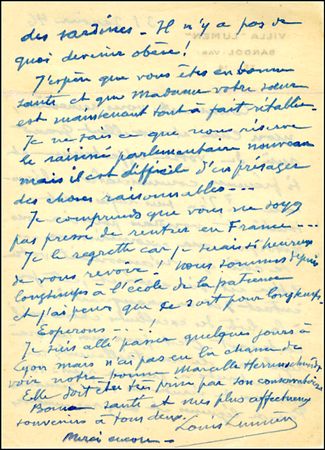 des sardines - Il n'y a pas de
quoi devenir obèse !
J'espère que vous êtes en bonne
santé et que Madame votre sœur
est maintenant tout à fait rétablie.
Je ne sais ce que nous réserve
le parlementaire nouveau
mais il est difficile d'en présager
des choses raisonnables ---
Je comprends que vous ne soyez
pas pressé de rentrer en France ---
Je le regrette car je serais si heureux
de vous revoir ! Nous sommes depuis
longtemps à l'école de la patience
et j'ai peur que ce soit pour longtemps.
Espérons --- !
Je suis allé passer quelques jours à
Lyon mais n'ai pas eu la chance de
voir notre bonne Marcelle
Elle doit être très prise par son conservatoire
Bonne santé et mes plus affectueux
souvenirs à tous deux.
Louis Lumière
Merci encore -
VILLA "LUMEN"
BANDOL VAR